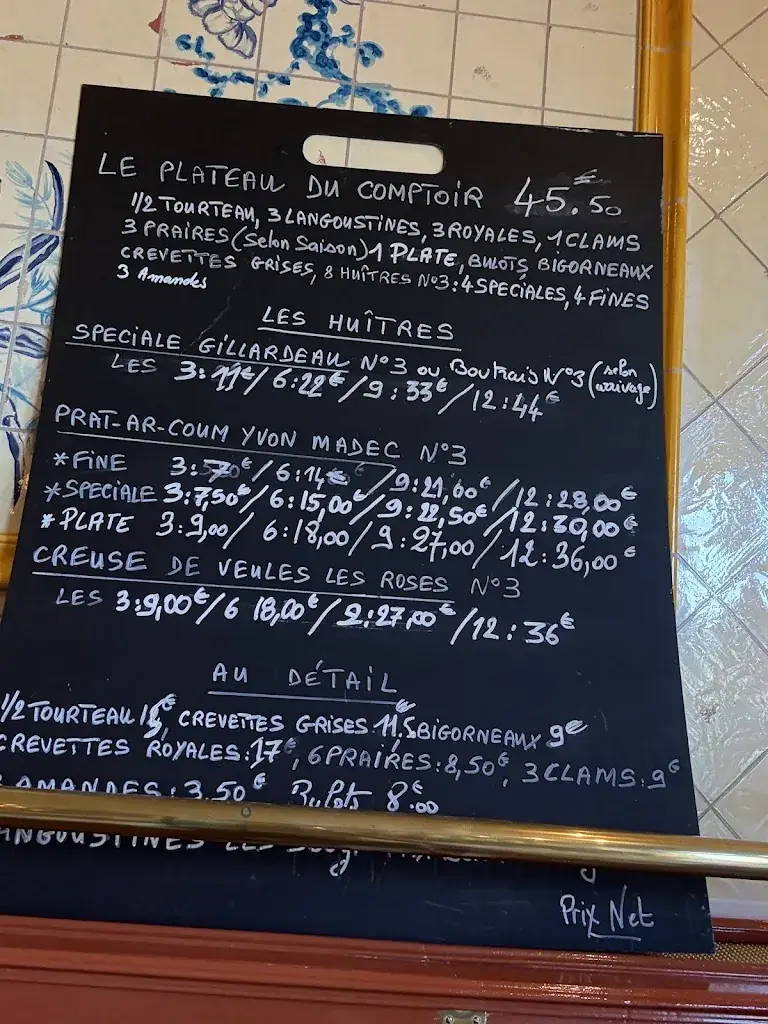 LE PLATEAU DU COMPTOIR 45.50€
1/2 TOURTEAU, 3 LANGOUSTINES, 3 ROYALES, 1 CLAMS
3 PRAIRES (Selon Saison) 1 PLATE, BULOTS, BIGORNEAUX
CREVETTES GRISES, 8 HUÎTRES N°3: 4 SPECIALES, 4 FINES
3 Amandes
LES HUÎTRES
SPECIALE GILLARDEAU N°3 ou Boutrais N°3 (selon arrivage)
LES 3:11€/ 6:22€/ 9:33€/ 12:44€
PRAT-AR-COUM YVON MADEC N°3
*FINE 3: €/ 6:14€ / 9:21,00€ / 12:28,00€
*SPECIALE 3:7,50€/ 6:15,00€/ 9:22,50€ / 12:30,00€
*PLATE 3:9,00/ 6:18,00/ 9:27,00/ 12:36,00€
CREUSE DE VEULES LES ROSES N°3
LES 3:9,00€/6 18,00€/ 9:27,00€ /12:36€
AU DÉTAIL
1/2 TOURTEAU €, CREVETTES GRISES: 11,5€ BIGORNEAUX 9€
CREVETTES ROYALES: 17€, 6 PRAIRES: 8,50€, 3 CLAMS: 9€
AMANDES: 3.50€ Bulots 8.00€
ANGOUSTINES LES
Prix Net